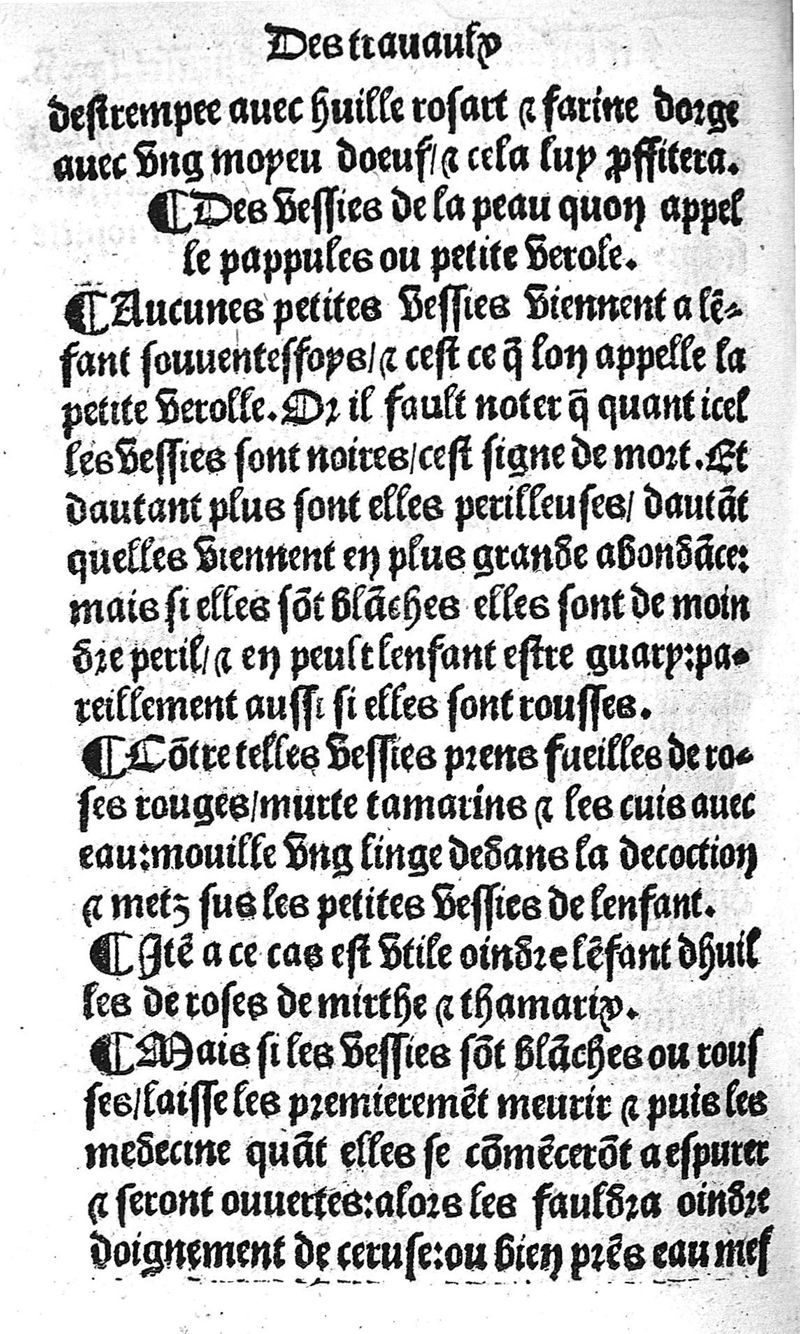 Des trauaulx
destrempee auec huille rosart ⁊ farine dorge
auec vng moyeu doeuf/⁊ cela luy ꝓffitera.
¶Des vessies de la peau quon appel
le pappules ou petite verole.
¶Aucunes petites vessies viennent a lẽ-
fant souuenteffoys/⁊ cest ce q̃ lon appelle la
petite verolle. Or il fault noter q̃ quant icel
les vessies sont noires/cest signe de mort. Et
dautant plus sont elles perilleuses/ dautãt
quelles viennent en plus grande abondãce:
mais si elles sõt blãches elles sont de moin
dre peril/⁊ en peult lenfant estre guary:pa-
reillement aussi si elles sont rousses.
¶Cõtre telles vessies prens fueilles de ro-
ses rouges/murte tamarins ⁊ les cuis auec
eau:mouille vng linge dedans la decoction
⁊ metz sus les petites vessies de lenfant.
¶Itẽ a ce cas est vtile oindre lẽfant dhuil
les de roses de mirthe ⁊ thamarix.
¶Mais si les vessies sõt blãches ou rous
ses/laisse les premieremẽt meurir ⁊ puis les
medecine quãt elles se cõmẽcerõt a espurer
⁊ seront ouuertes:alors les fauldra oindre
doignement de ceruse:ou bien prẽs eau mes